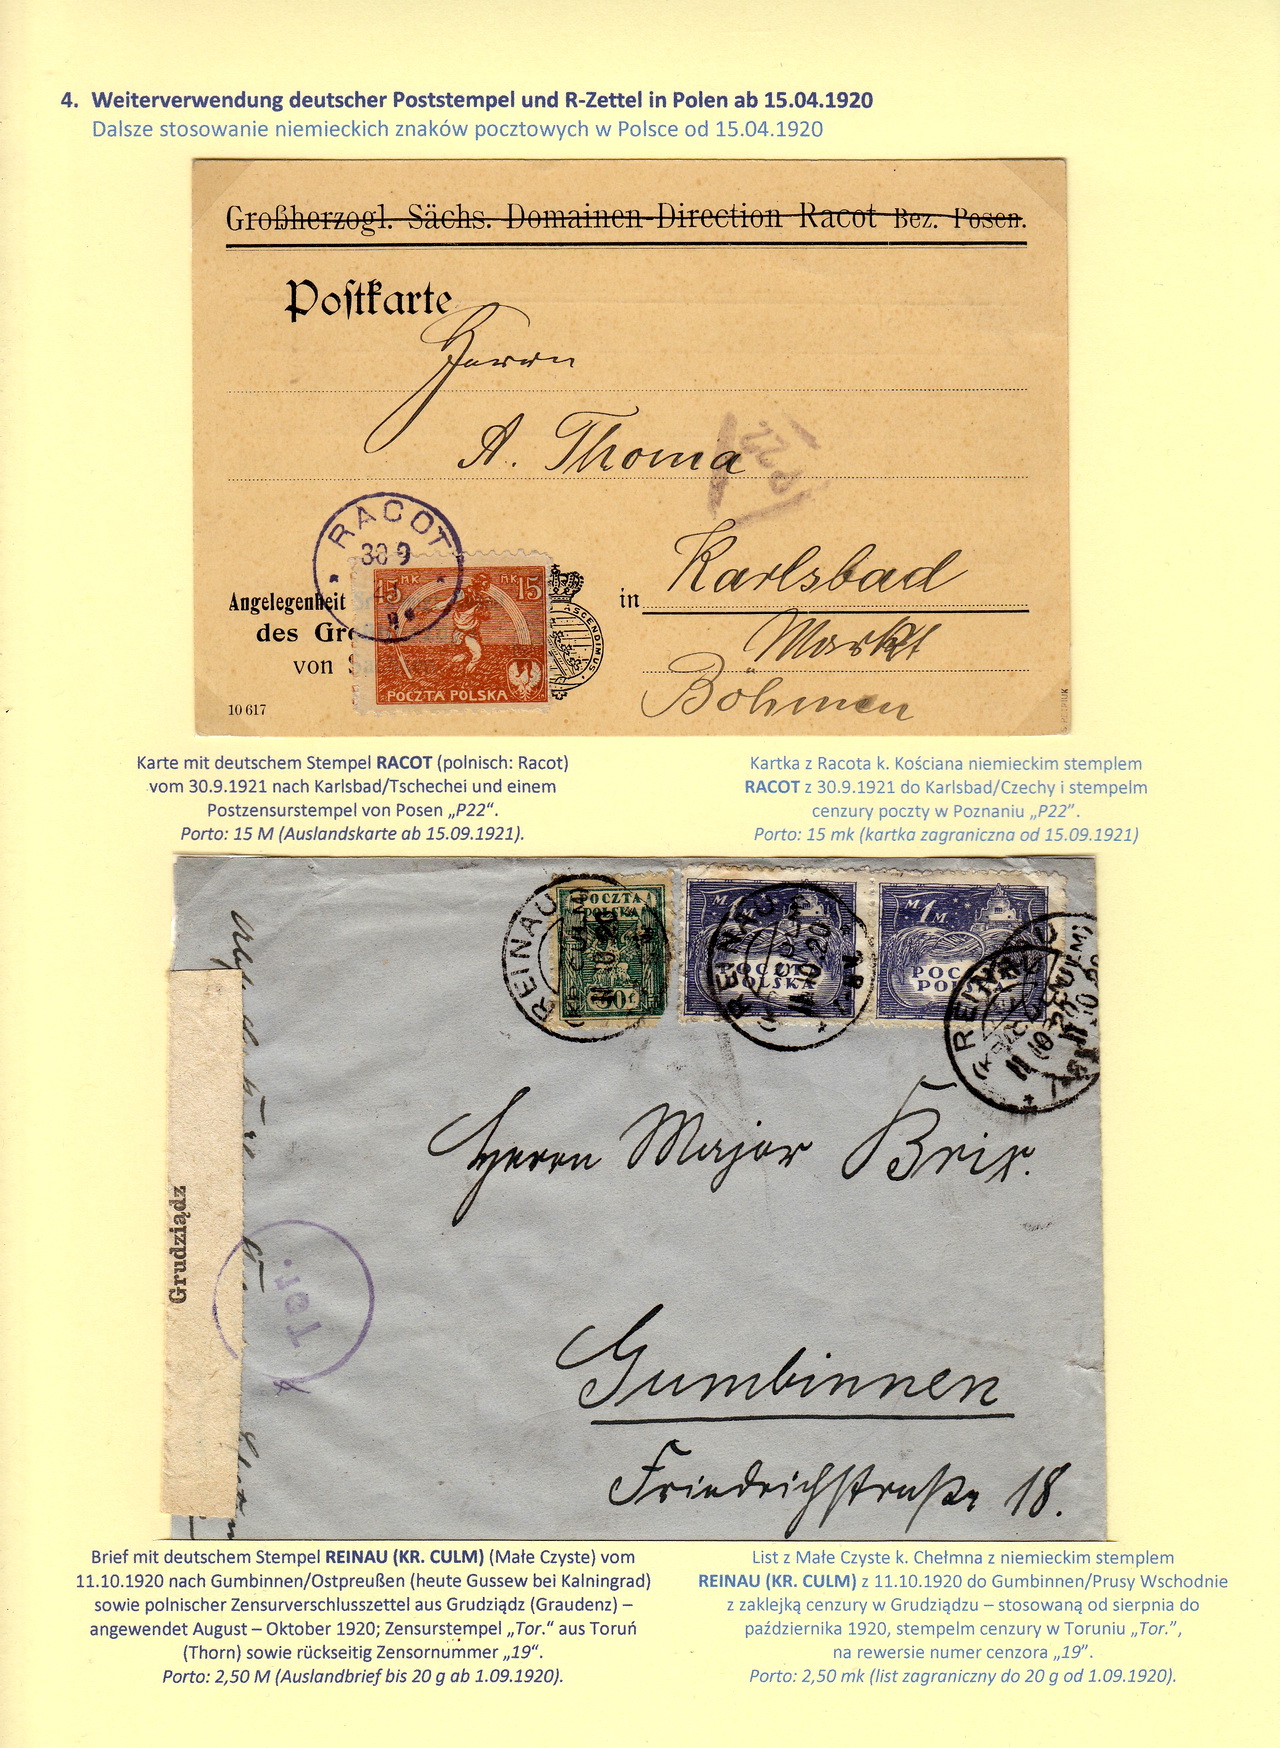 4. Weiterverwendung deutscher Poststempel und R-Zettel in Polen ab 15.04.1920
Dalsze stosowanie niemieckich znaków pocztowych w Polsce od 15.04.1920
Großherzogl. Sächs. Domainen-Direction Racot Bez. Posen.
Postkarte
Herrn
A. Thoma
P 22
RACOT
30 9
15 MK MK 15
POCZTA POLSKA
ASCENDIMUS
Angelegenheit
des Gro
von Sa
in Karlsbad
Markt
Böhmen
10 617
Karte mit deutschem Stempel RACOT (polnisch: Racot)
vom 30.9.1921 nach Karlsbad/Tschechei und einem
Postzensurstempel von Posen „P22“.
Porto: 15 M (Auslandskarte ab 15.09.1921).
Kartka z Racota k. Kościana niemieckim stemplem
RACOT z 30.9.1921 do Karlsbad/Czechy i stempelm
cenzury poczty w Poznaniu „P22”.
Porto: 15 mk (kartka zagraniczna od 15.09.1921)
POCZTA
POLSKA
50
REINAU
(KR. CULM)
11 10 20
M 1 M
POCZTA
POLSKA
REINAU
11 10 20
M 1 M
POCZTA
POLSKA
REINAU
11 10 20
Grudziądz
Tor.
Herrn Major Brix.
Gumbinnen
Friedrichstraße 18.
Brief mit deutschem Stempel REINAU (KR. CULM) (Małe Czyste) vom
11.10.1920 nach Gumbinnen/Ostpreußen (heute Gussew bei Kalningrad)
sowie polnischer Zensurverschlusszettel aus Grudziądz (Graudenz) –
angewendet August – Oktober 1920; Zensurstempel „Tor.“ aus Toruń
(Thorn) sowie rückseitig Zensornummer „19“.
Porto: 2,50 M (Auslandbrief bis 20 g ab 1.09.1920).
List z Małe Czyste k. Chełmna z niemieckim stemplem
REINAU (KR. CULM) z 11.10.1920 do Gumbinnen/Prusy Wschodnie
z zaklejką cenzury w Grudziądzu – stosowaną od sierpnia do
października 1920, stempelm cenzury w Toruniu „Tor.”,
na rewersie numer cenzora „19”.
Porto: 2,50 mk (list zagraniczny do 20 g od 1.09.1920).